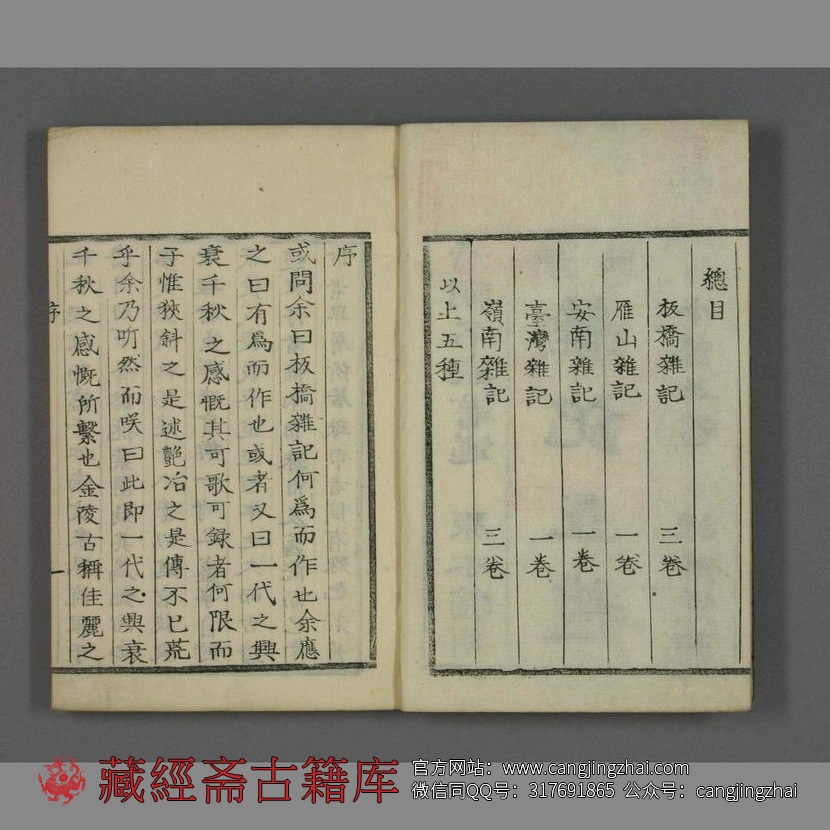 總目
板橋雜記 三卷
雁山雜記 一卷
安南雜記 一卷
臺灣雜記 一卷
嶺南雜記 三卷
以上五種
序
或問余曰板橋雜記何爲而作也余應
之曰有爲而作也或者又曰一代之興
衰千秋之感慨其可歌可録者何限而
子惟狹斜之是述艶冶之是傳不已荒
乎余乃听然而咲曰此即一代之興衰
千秋之感慨所繫也金陵古稱佳麗之
序
一
藏經斋古籍库
官方网站：www.cangjingzhai.com
微信同QQ号：317691865 公众号：cangjingzhai